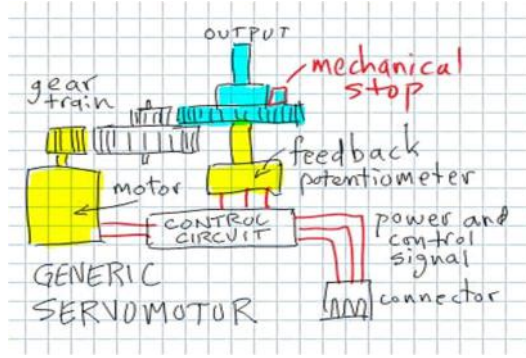 OUTPUT
mechanical
stop
gear
train
feedback
potentiometer
motor
CONTROL
CIRCUIT
power and
control
signal
connector
GENERIC
SERVOMOTOR